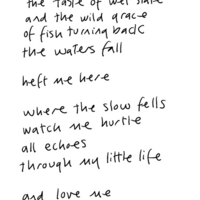 the taste of wet slate
and the wild grace
of fish turning back
the waters fall
heft me here
where the slow fells
watch me hurtle
all echoes
through my little life
and love me